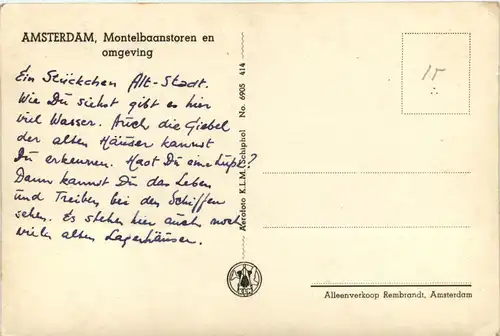 AMSTERDAM, Montelbaanstoren en
omgeving
Ein Stückchen Alt-Stadt.
Wie Du siehst gibt es hier
viel Wasser. Auch die Giebel
der alten Häuser kannst
Du erkennen. Hast Du eine Lupe?
Dann kannst Du das Leben
und Treiben bei den Schiffen
sehen. Es stehen hier auch noch
viele alten Lagerhäuser.
Aerofoto K.L.M. Schiphol No. 6905 414
15
Alleenverkoop Rembrandt, Amsterdam